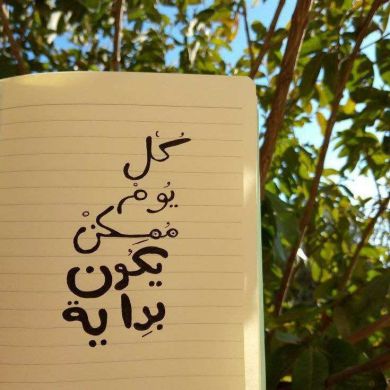 كُل
يُومْ
مُمكِنْ
يكُون
بِداية